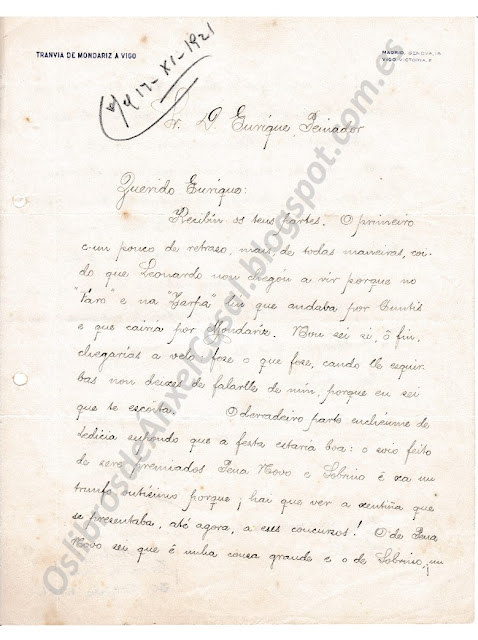 TRANVIA DE MONDARIZ A VIGO
MADRID, GENOVA, 15
VIGO, VICTORIA, 2
17-XI-1921
Sr. D. Enrique Peinador
Querido Enrique:
Recibín os teus partes. O primeiro
c-un pouco de retraso, mais de todas maneiras, coi-
do que Leonardo non chegóu a vir porque no
"Faro" e na "Zarpa" lin que andaba por Cuntis
e que cairía por Mondariz. Nou sei si, ô fin,
chegarías a velo; fose o que fose, cando lle escir-
bas non deixes de falarlle de min, porque eu sei
que te escoita. O derradeiro parte encheume de
ledicia supondo que a festa estaría boa: o solo feito
de sere premiados Pena Novo e Sobrino é xa un
trunfo porque ¡hai que ver a xentiña que
se presentaba, até agora, a eses concursos! O de Pena
Novo seu que é unha cousa grande e o de Sobrino, un
OsHotosdeAnxelCasal.blogspot.com.es